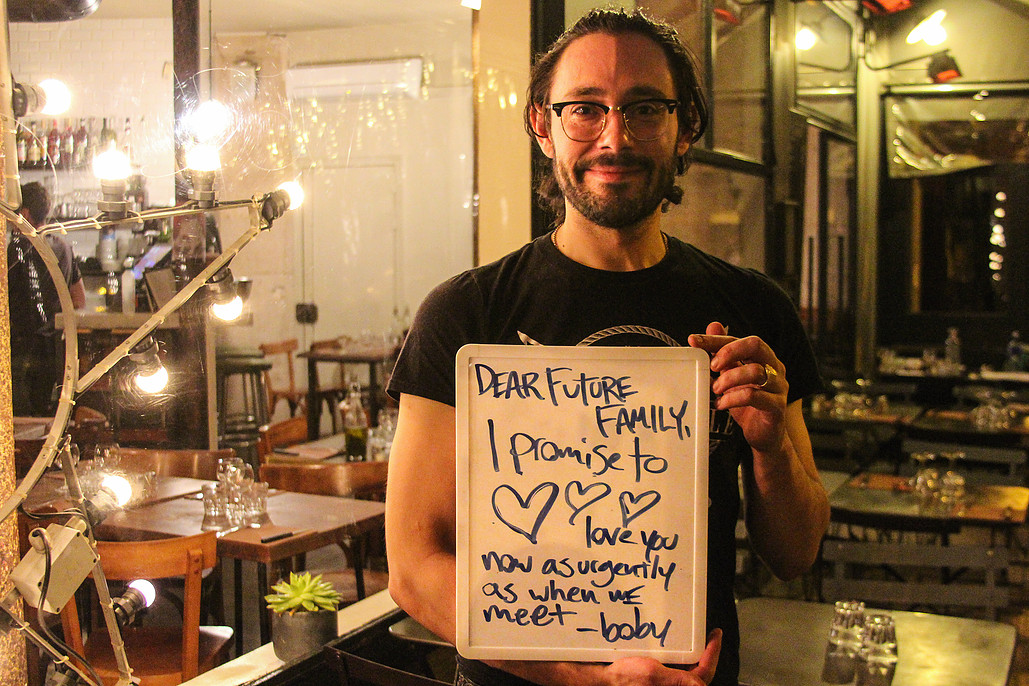 DEAR FUTURE
FAMILY,
I promise to
love you
now as urgently
as when WE
meet - boby